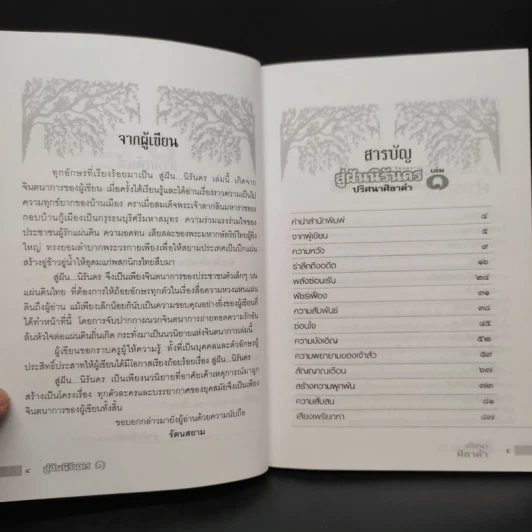 จากผู้เขียน
ทุกอักษรที่เรียงร้อยมาเป็น สู่ฝัน...นิรันดร เล่มนี้ เกิดจาก
จินตนาการของผู้เขียน เมื่อครั้งได้เรียนรู้และได้อ่านเรื่องราวความเป็นไป
ความทุกข์ยากของบ้านเมือง คราเมื่อสมเด็จพระเจ้าตากสินมหาราชทรง
กอบบ้านกู้เมืองเป็นกรุงธนบุรีศรีมหาสมุทร ความร่วมแรงร่วมใจของ
ประชาชนผู้รักแผ่นดิน ความอดทน เสียสละของพระมหากษัตริย์ไทยผู้ยิ่ง
ใหญ่ ทรงยอมลำบากพระวรกายเพียงเพื่อให้สยามประเทศเป็นปึกแผ่น
สร้างอู่ข้าวอู่น้ำให้อุดมแก่พสกนิกรไทยสืบมา
สู่ฝัน...นิรันดร จึงเป็นเพียงจินตนาการของประชาชนตัวเล็กๆ บน
แผ่นดินไทย ที่ต้องการให้ถ้อยอักษรทุกตัวในเรื่องสื่อความหวงแหนแผ่น
ดินถึงผู้อ่าน แม้เพียงเล็กน้อยก็นับเป็นความขอบคุณอย่างยิ่งของผู้เขียนที่
ได้ทำหน้าที่นี้ โดยการจับปากกาผนวกจินตนาการถ่ายทอดความรักอัน
ล้นหัวใจต่อแผ่นดินถิ่นเกิด กระทั่งมาเป็นนวนิยายแห่งจินตนาการเล่มนี้
ผู้เขียนขอกราบครูผู้ให้ความรู้ ทั้งที่เป็นบุคคลและตัวอักษรผู้
ประสิทธิ์ประสาทให้ผู้เขียนได้มีโอกาสเรียงถ้อยร้อยเรื่อง สู่ฝัน...นิรันดร
สู่ฝัน...นิรันดร เป็นเพียงนวนิยายที่อาศัยเค้าเหตุการณ์ในอดีตมาผูก
สร้างเป็นโครงเรื่อง ทุกตัวละครและบรรยากาศของยุคสมัยจึงเป็นเพียง
จินตนาการของผู้เขียนทั้งสิ้น
ขอบอกกล่าวมายังผู้อ่านด้วยความนับถือ
รัตนสยาม
๔ สู่ฝันนิรันดร ๑
สารบัญ
สู่ฝันนิรันดร เล่ม ๑
ปริศนาศิลาดำ
คำนำสำนักพิมพ์ ๔
จากผู้เขียน ๕
ความหวัง ๙
รำลึกถึงอดีต ๑๖
พลังซ่อนเร้น ๒๔
พัชรีเฟื่อง ๓๑
ความสัมพันธ์ ๓๘
ซ่อนใจ ๔๕
ความบังเอิญ ๕๒
ความพยายามของเจ้าสัว ๕๙
สัญญากาลเดือน ๖๗
สร้างความผูกพัน ๗๓
ความสับสน ๘๑
เสียงเพรียกหา ๘๗
ปริศนา
ศิลาดำ